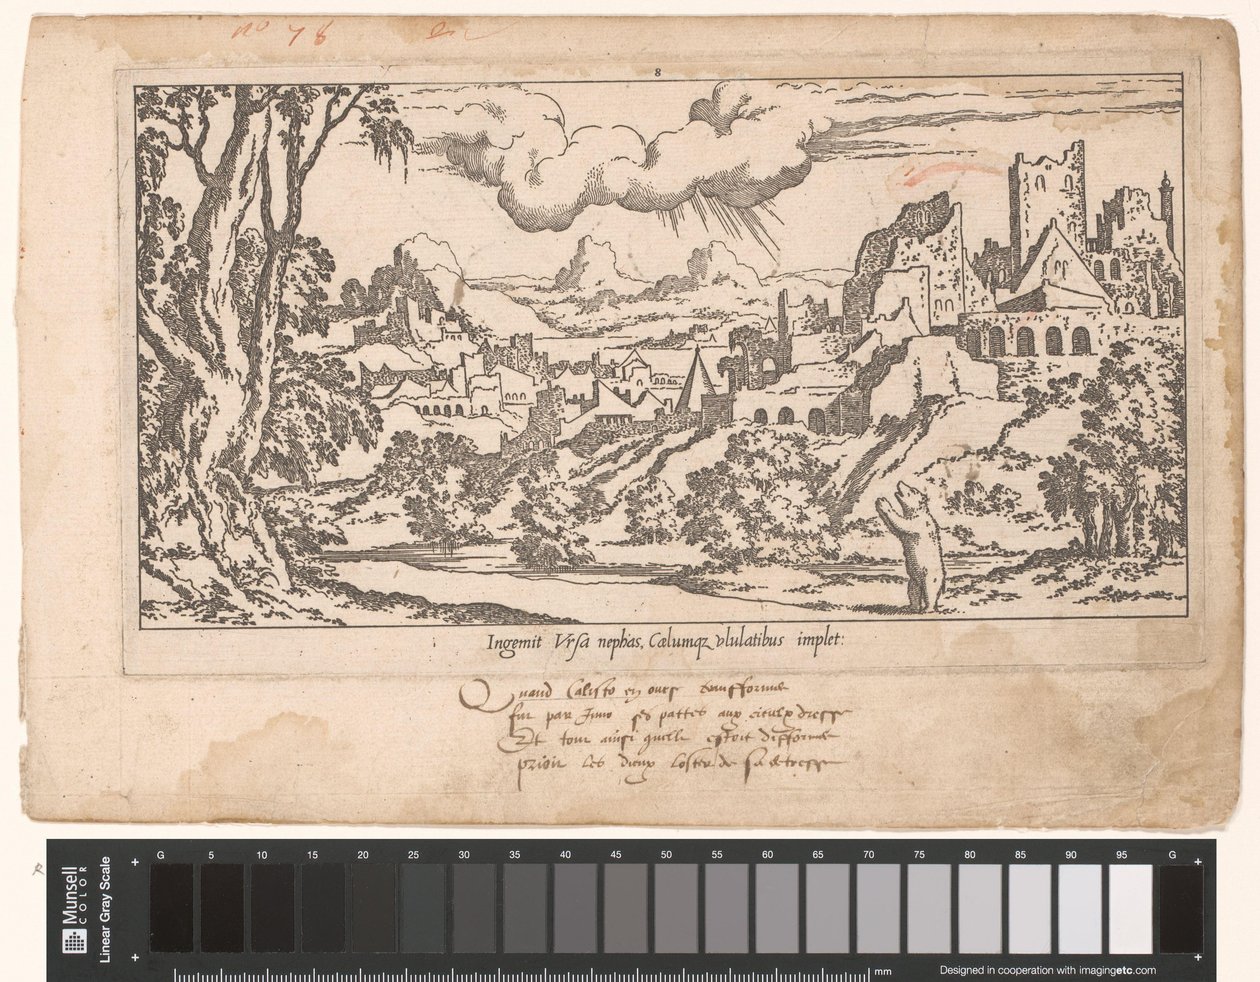 no 78
8
Ingemit Vrsa nephas, Cælumqz vlulatibus implet:
Quand Calisto en ours transforme
fut par Juno ses pattes aux cieulx dresse
Et tout ainsi quelle estoit difforme
prioit les dieux loster de sa detresse
Munsell
COLOR
Linear Gray Scale
G 5 10 15 20 25 30 35 40 45 50 55 60 65 70 75 80 85 90 95 G
mm
Designed in cooperation with imagingetc.com